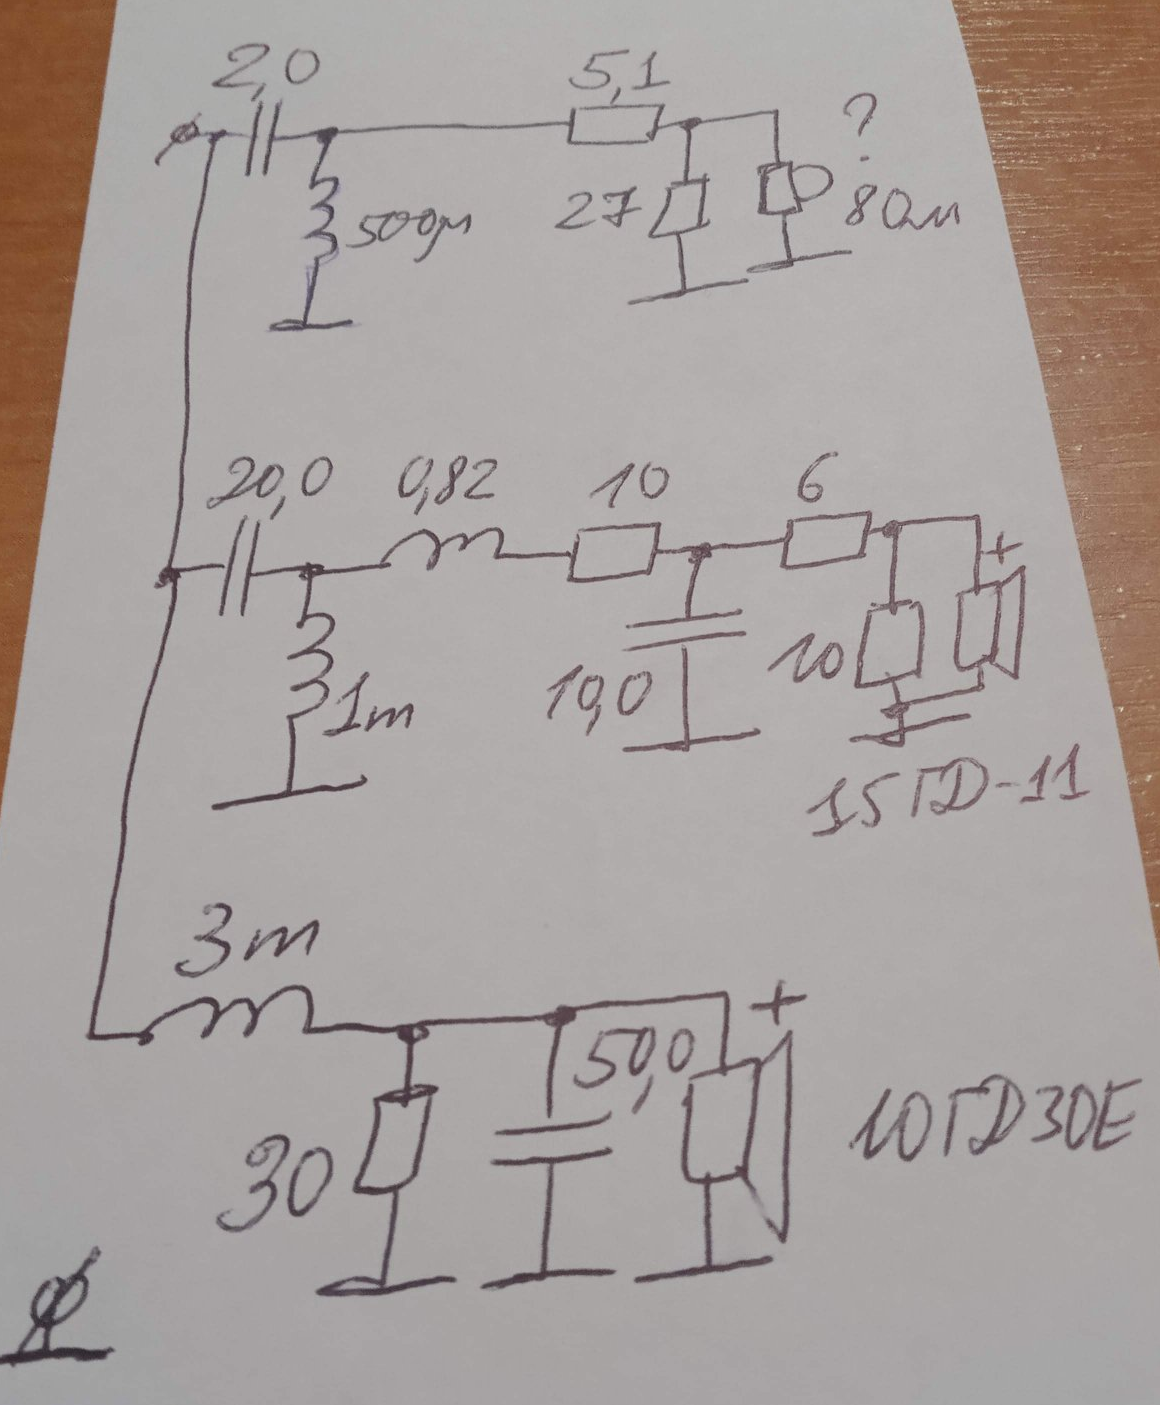 2,0
5,1
?
500μ
27
8Ом
20,0
0,82
10
6
+
1m
10,0
10
15ГD-11
3m
+
50,0
30
10ГD30E